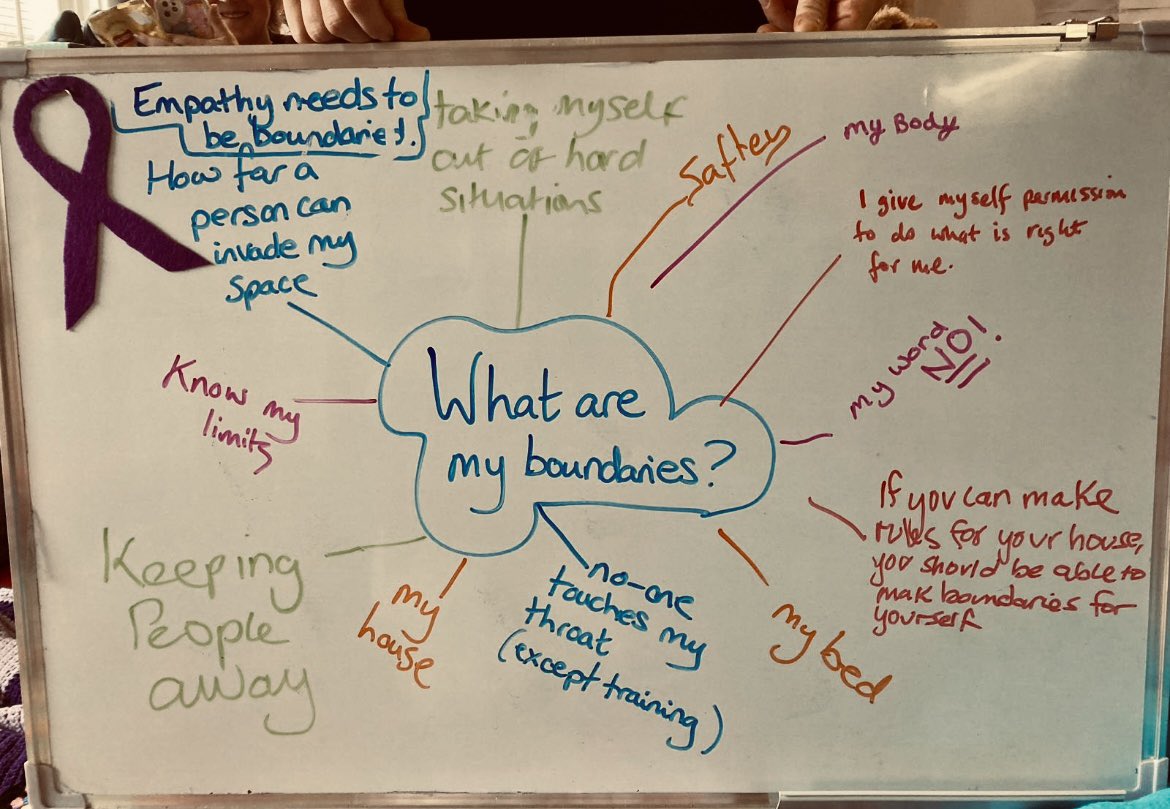 Empathy needs to
be boundaried.
How far a
person can
invade my
space
taking myself
out of hard
situations
Saftey
my Body
I give myself permission
to do what is right
for me.
my word
NO!
What are
my boundaries?
Know my
limits
Keeping
People
away
my
house
no-one
touches my
throat
(except training)
my bed
If you can make
rules for your house,
you should be able to
mak boundaries for
yourself